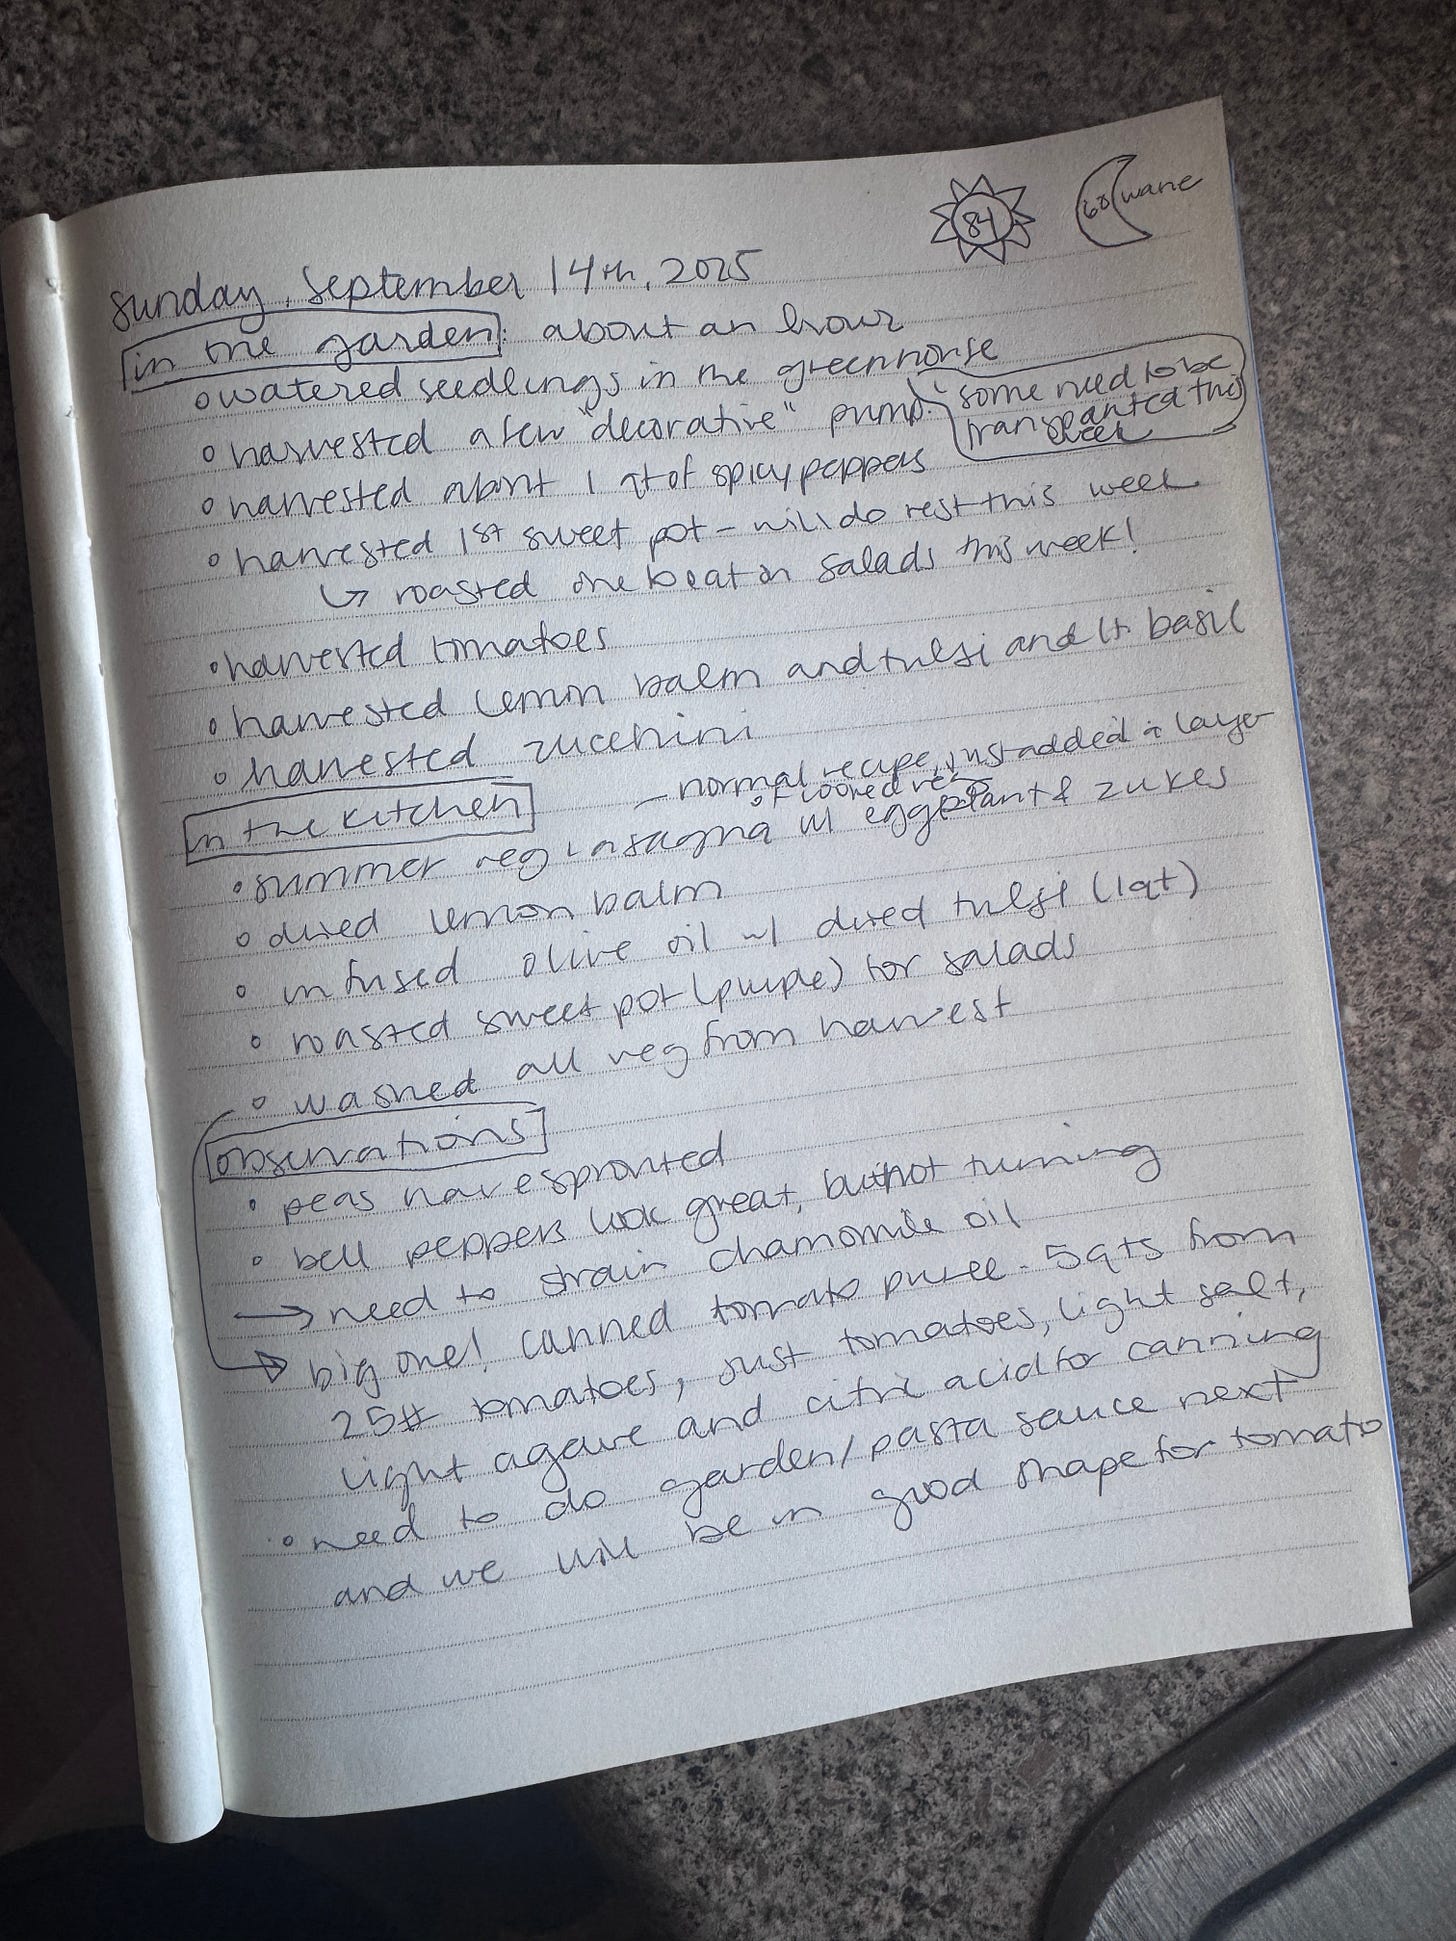 84 68 wane
sunday, september 14th, 2025
in the garden: about an hour
watered seedlings in the greenhouse
some need to be
transplanted this
week
harvested a few "decorative" pump.
harvested about 1 qt of spicy peppers
harvested 1st sweet pot - will do rest this week
↳ roasted one to eat on salads this week!
harvested tomatoes
harvested lemon balm and tulsi and lt basil
harvested zucchini
in the kitchen
- normal recipe, just added a layer
of cooked veg
summer veg lasagna w/ eggplant & zukes
dried lemon balm
infused olive oil w/ dried tulsi (1qt)
roasted sweet pot (purple) for salads
washed all veg from harvest
observations
peas have sprouted
bell peppers look great, but not turning
→ need to strain chamomile oil
big one! canned tomato puree. 5qts from
25# tomatoes, just tomatoes, light salt,
light agave and citric acid for canning
need to do garden/pasta sauce next
and we will be in good shape for tomato